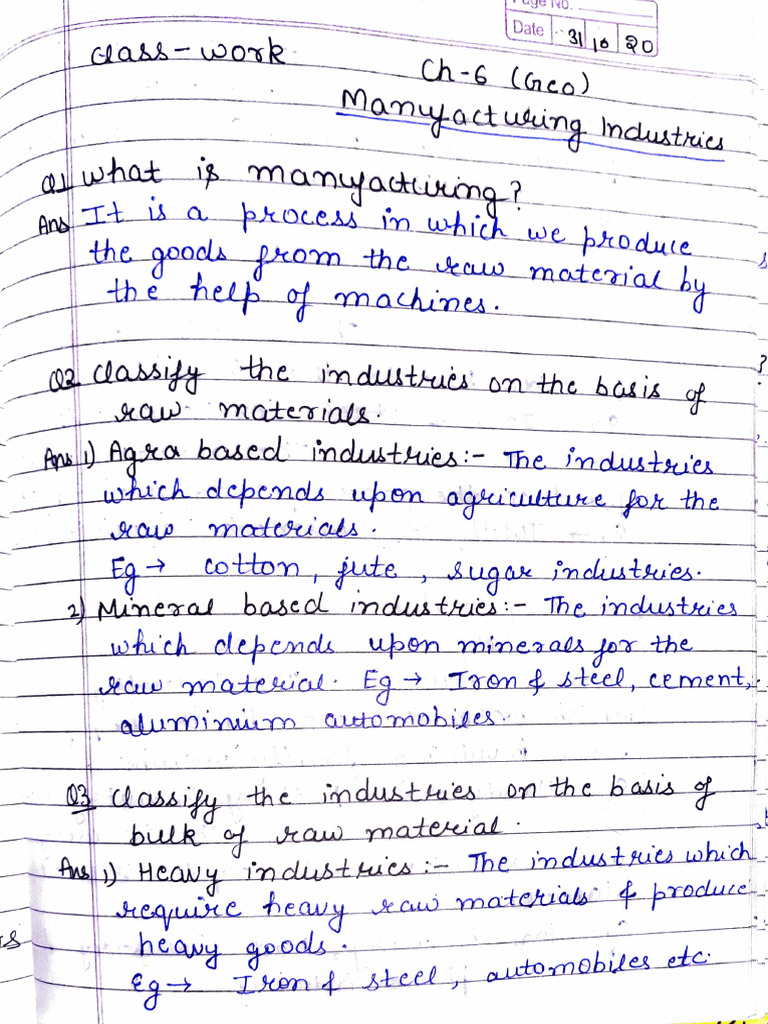 Page No.
Date 31 10 20
class-work
Ch-6 (Geo)
Manufacturing Industries
Q1 What is manufacturing?
Ans It is a process in which we produce
the goods from the raw material by
the help of machines.
Q2 Classify the industries on the basis of
raw materials.
Ans 1) Agra based industries:- The industries
which depends upon agriculture for the
raw materials.
Eg → cotton, jute, sugar industries.
2) Mineral based industries:- The industries
which depends upon minerals for the
raw material. Eg → Iron & steel, cement,
aluminium automobiles.
Q3 Classify the industries on the basis of
bulk of raw material.
Ans 1) Heavy industries:- The industries which
require heavy raw materials & produce
heavy goods.
Eg → Iron & steel, automobiles etc.